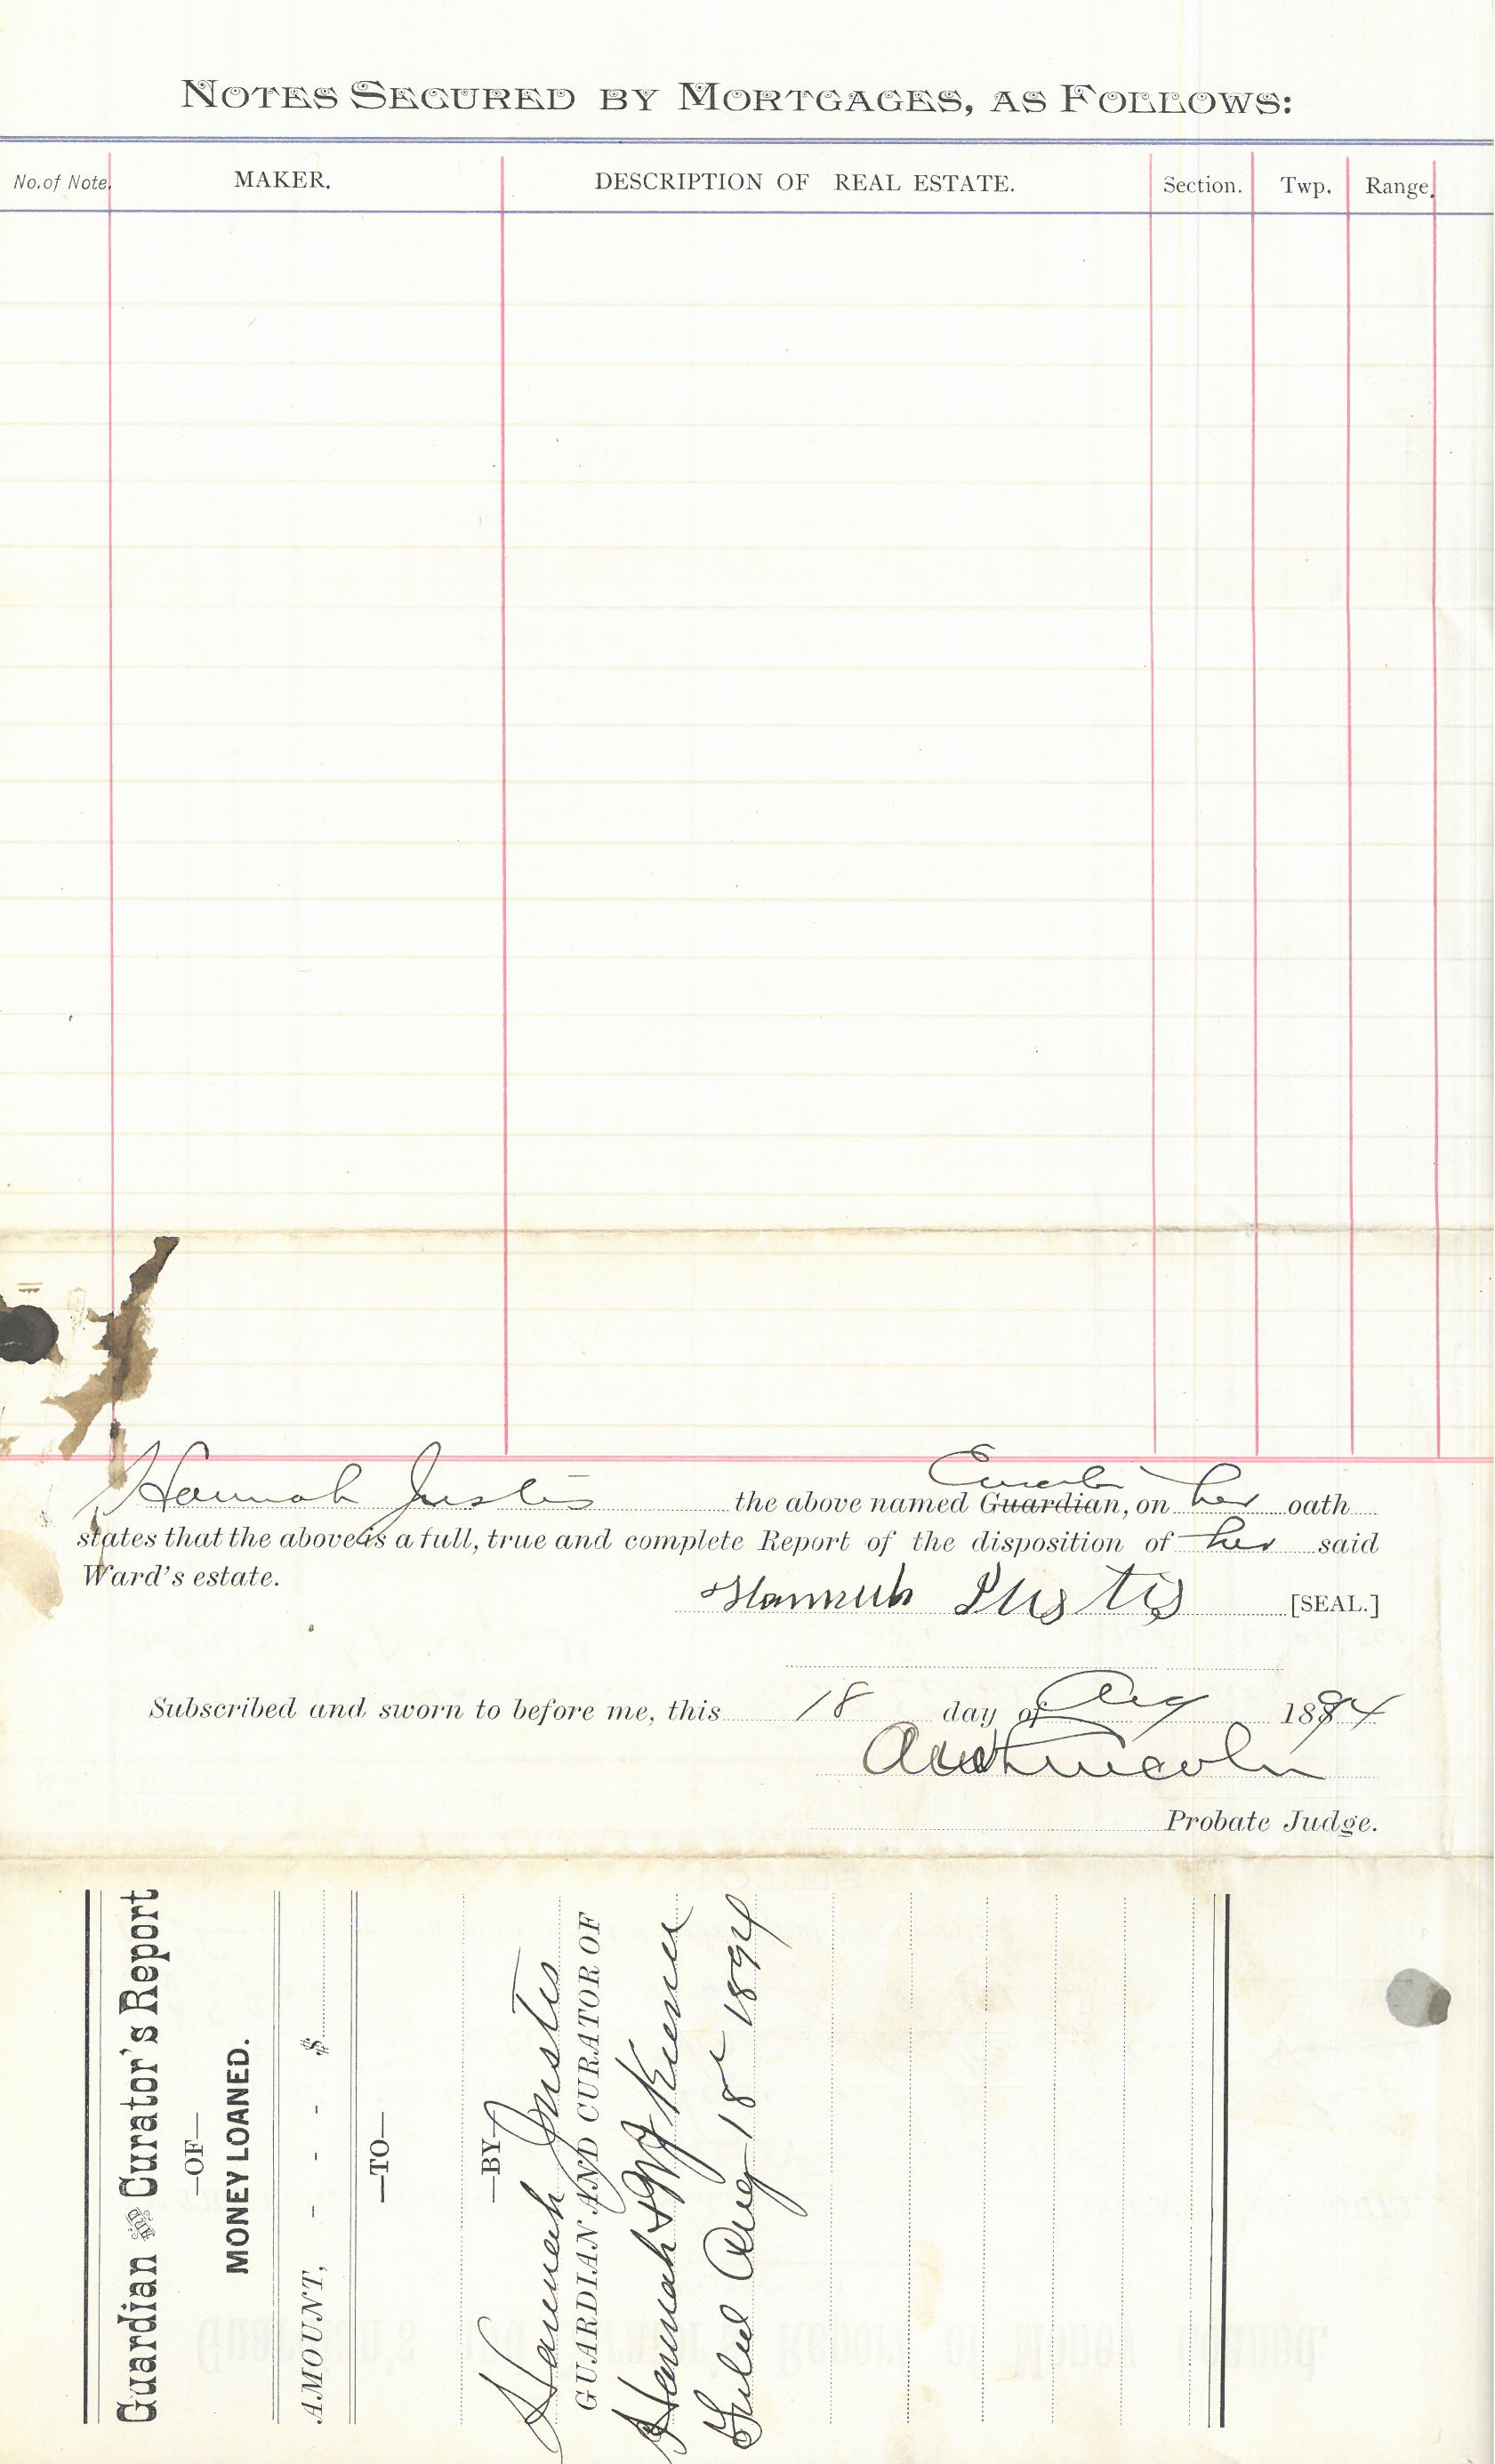 NOTES SECURED BY MORTGAGES, AS FOLLOWS:
No. of Note. MAKER. DESCRIPTION OF REAL ESTATE. Section. Twp. Range.
Hannah Justis the above named Guardian, on her oath
states that the above is a full, true and complete Report of the disposition of her said
Ward's estate.
Hannah Justis [SEAL.]
Subscribed and sworn to before me, this 18 day of Aug 1894
Lincoln
Probate Judge.
Guardian and Curator's Report
—OF—
MONEY LOANED.
AMOUNT, - - - $
—TO—
—BY—
Hannah Justis
GUARDIAN AND CURATOR OF
Hannah & W J
Filed Aug 18 1894